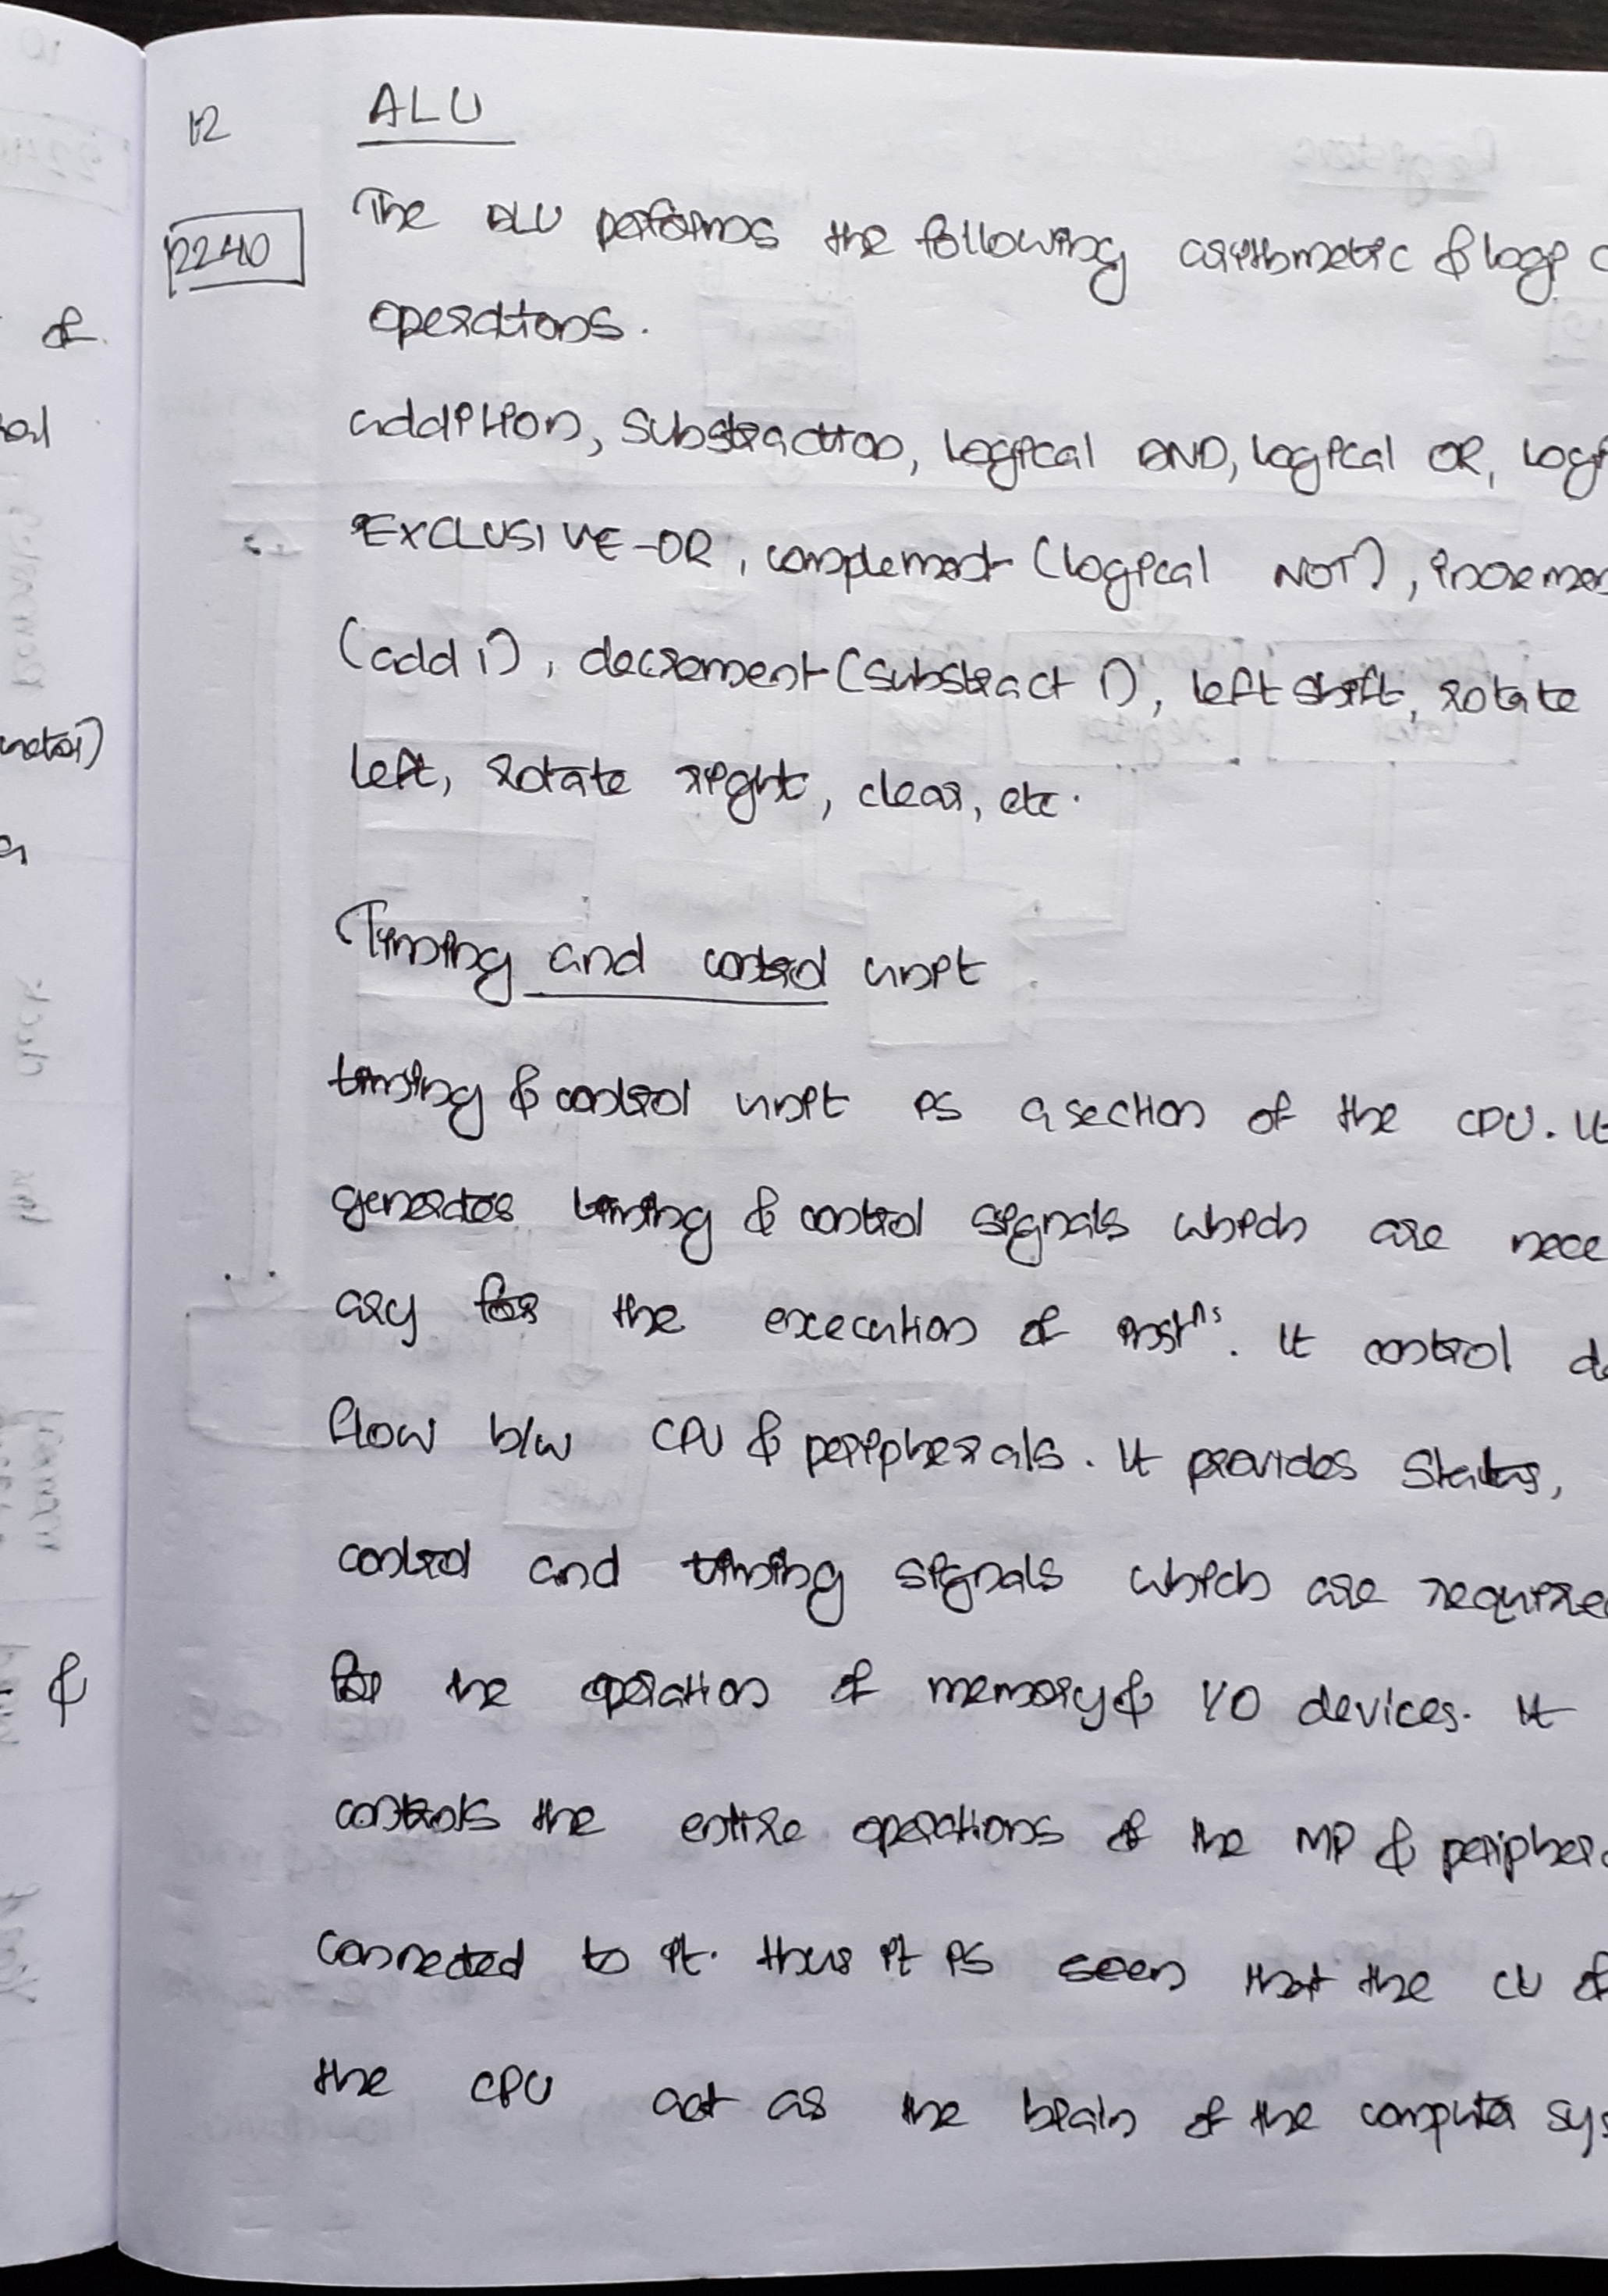 12 ALU
The ALU performs the following arithmetic & logic
2240
operations.
addition, Substraction, Logical AND, logical OR, Logi
EXCLUSIVE-OR, complement (logical NOT), incremen
(add 1), decrement (Substract 1), left shift, rotate
left, rotate right, clear, etc.
Timing and control unit
timing & control unit is a section of the CPU. It
generates timing & control signals which are nece
ary for the execution of instⁿˢ. It control da
flow b/w CPU & peripherals. It provides Status,
control and timing signals which are require
for the operation of memory & I/O devices. It
controls the entire operations of the MP & peripher
connected to it. thus it is seen that the CU of
the CPU act as the brain of the computer sys
of
&